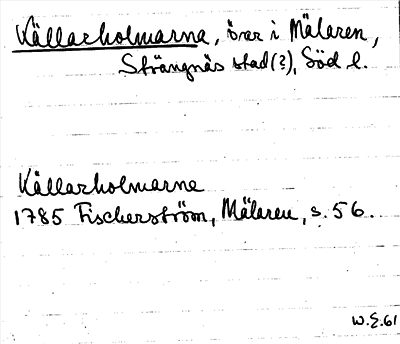 Källarholmarna, öar i Mälaren,
Strängnäs stad (?), Söd l.
Källarholmarne
1785 Fischerström, Mälaren, s. 56.
W.E. 61